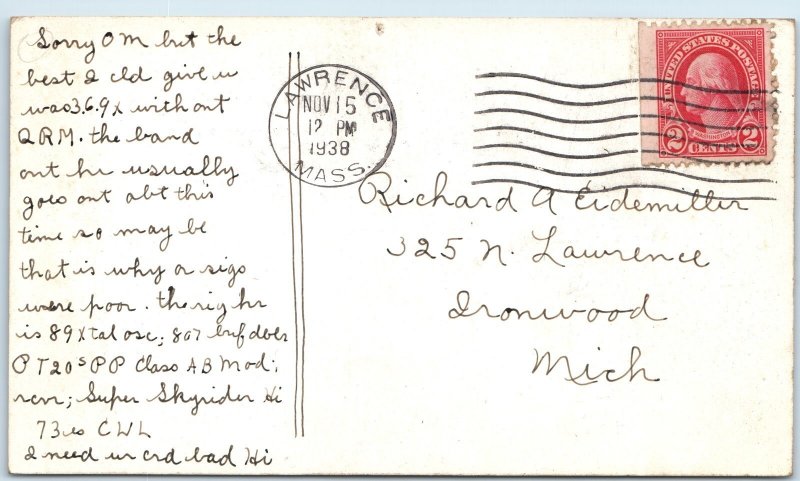 Sorry OM but the
best I cld give u
was 3.6.9x without
QRM. the band
ont hr usually
goes out abt this
time so may be
that is why r sigs
were poor. the rig hr
is 89 xtal osc; 807 buf dbler
P T20s PP Class AB Mod;
rcvr; Super Skyrider Hi
73 es CUL
I need ur crd bad Hi
LAWRENCE
NOV 15
12 PM
1938
MASS.
UNITED STATES POSTAGE
WASHINGTON
2 CENTS 2
Richard A Eidemiller
325 N. Lawrence
Ironwood
Mich